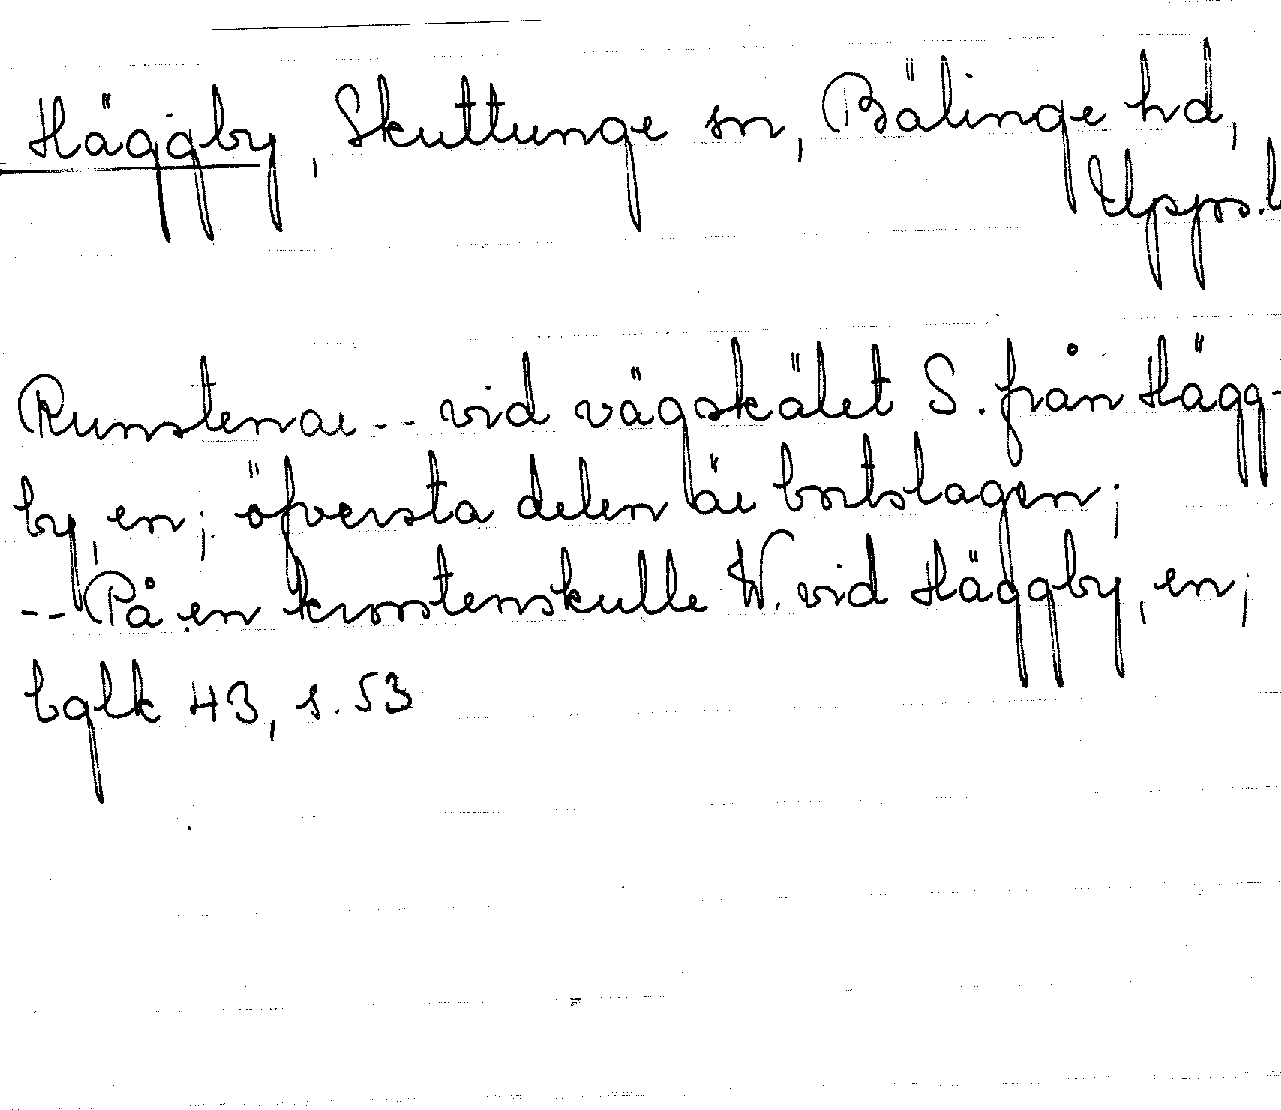 Häggby, Skuttunge sn, Bälinge hd,
Upps. l
Runstenar -- vid vägskälet S. från Hägg-
by, en; öfversta delen är bortslagen;
-- På en krosstenskulle W. vid Häggby, en;
bglk 43, s. 53